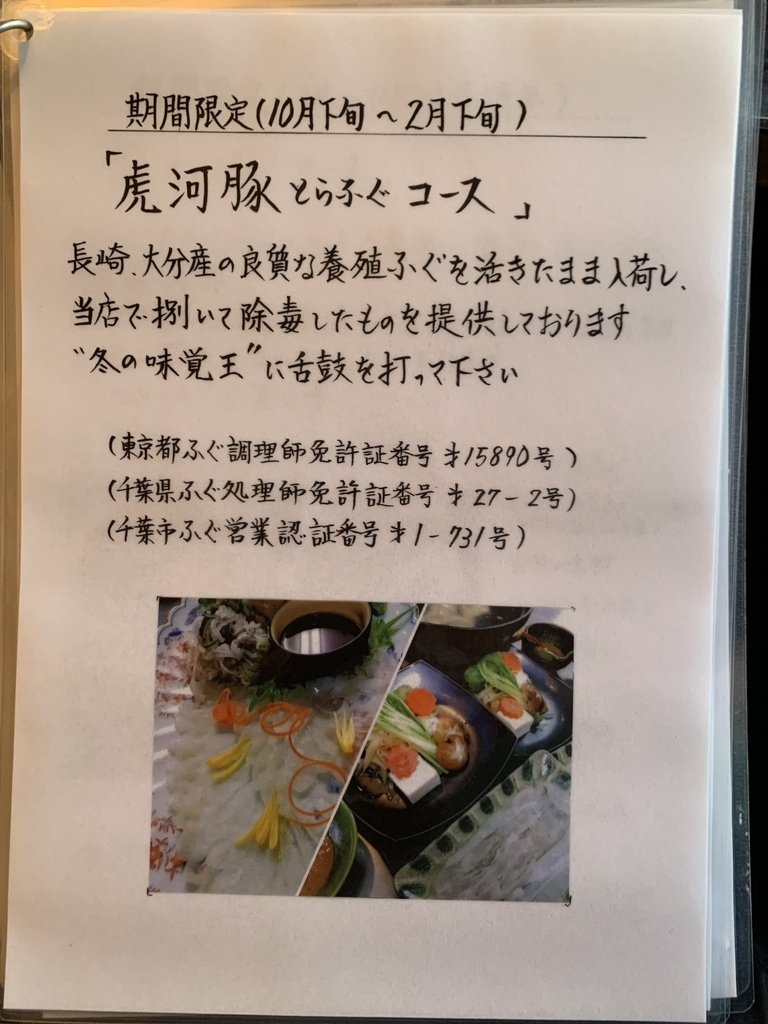 期間限定(10月下旬～2月下旬)
「虎河豚とらふぐコース」
長崎、大分産の良質な養殖ふぐを活きたまま入荷し、
当店で捌いて除毒したものを提供しております
"冬の味覚王"に舌鼓を打って下さい
(東京都ふぐ調理師免許証番号 第15890号)
(千葉県ふぐ処理師免許証番号 第27-2号)
(千葉市ふぐ営業認証番号 第1-731号)